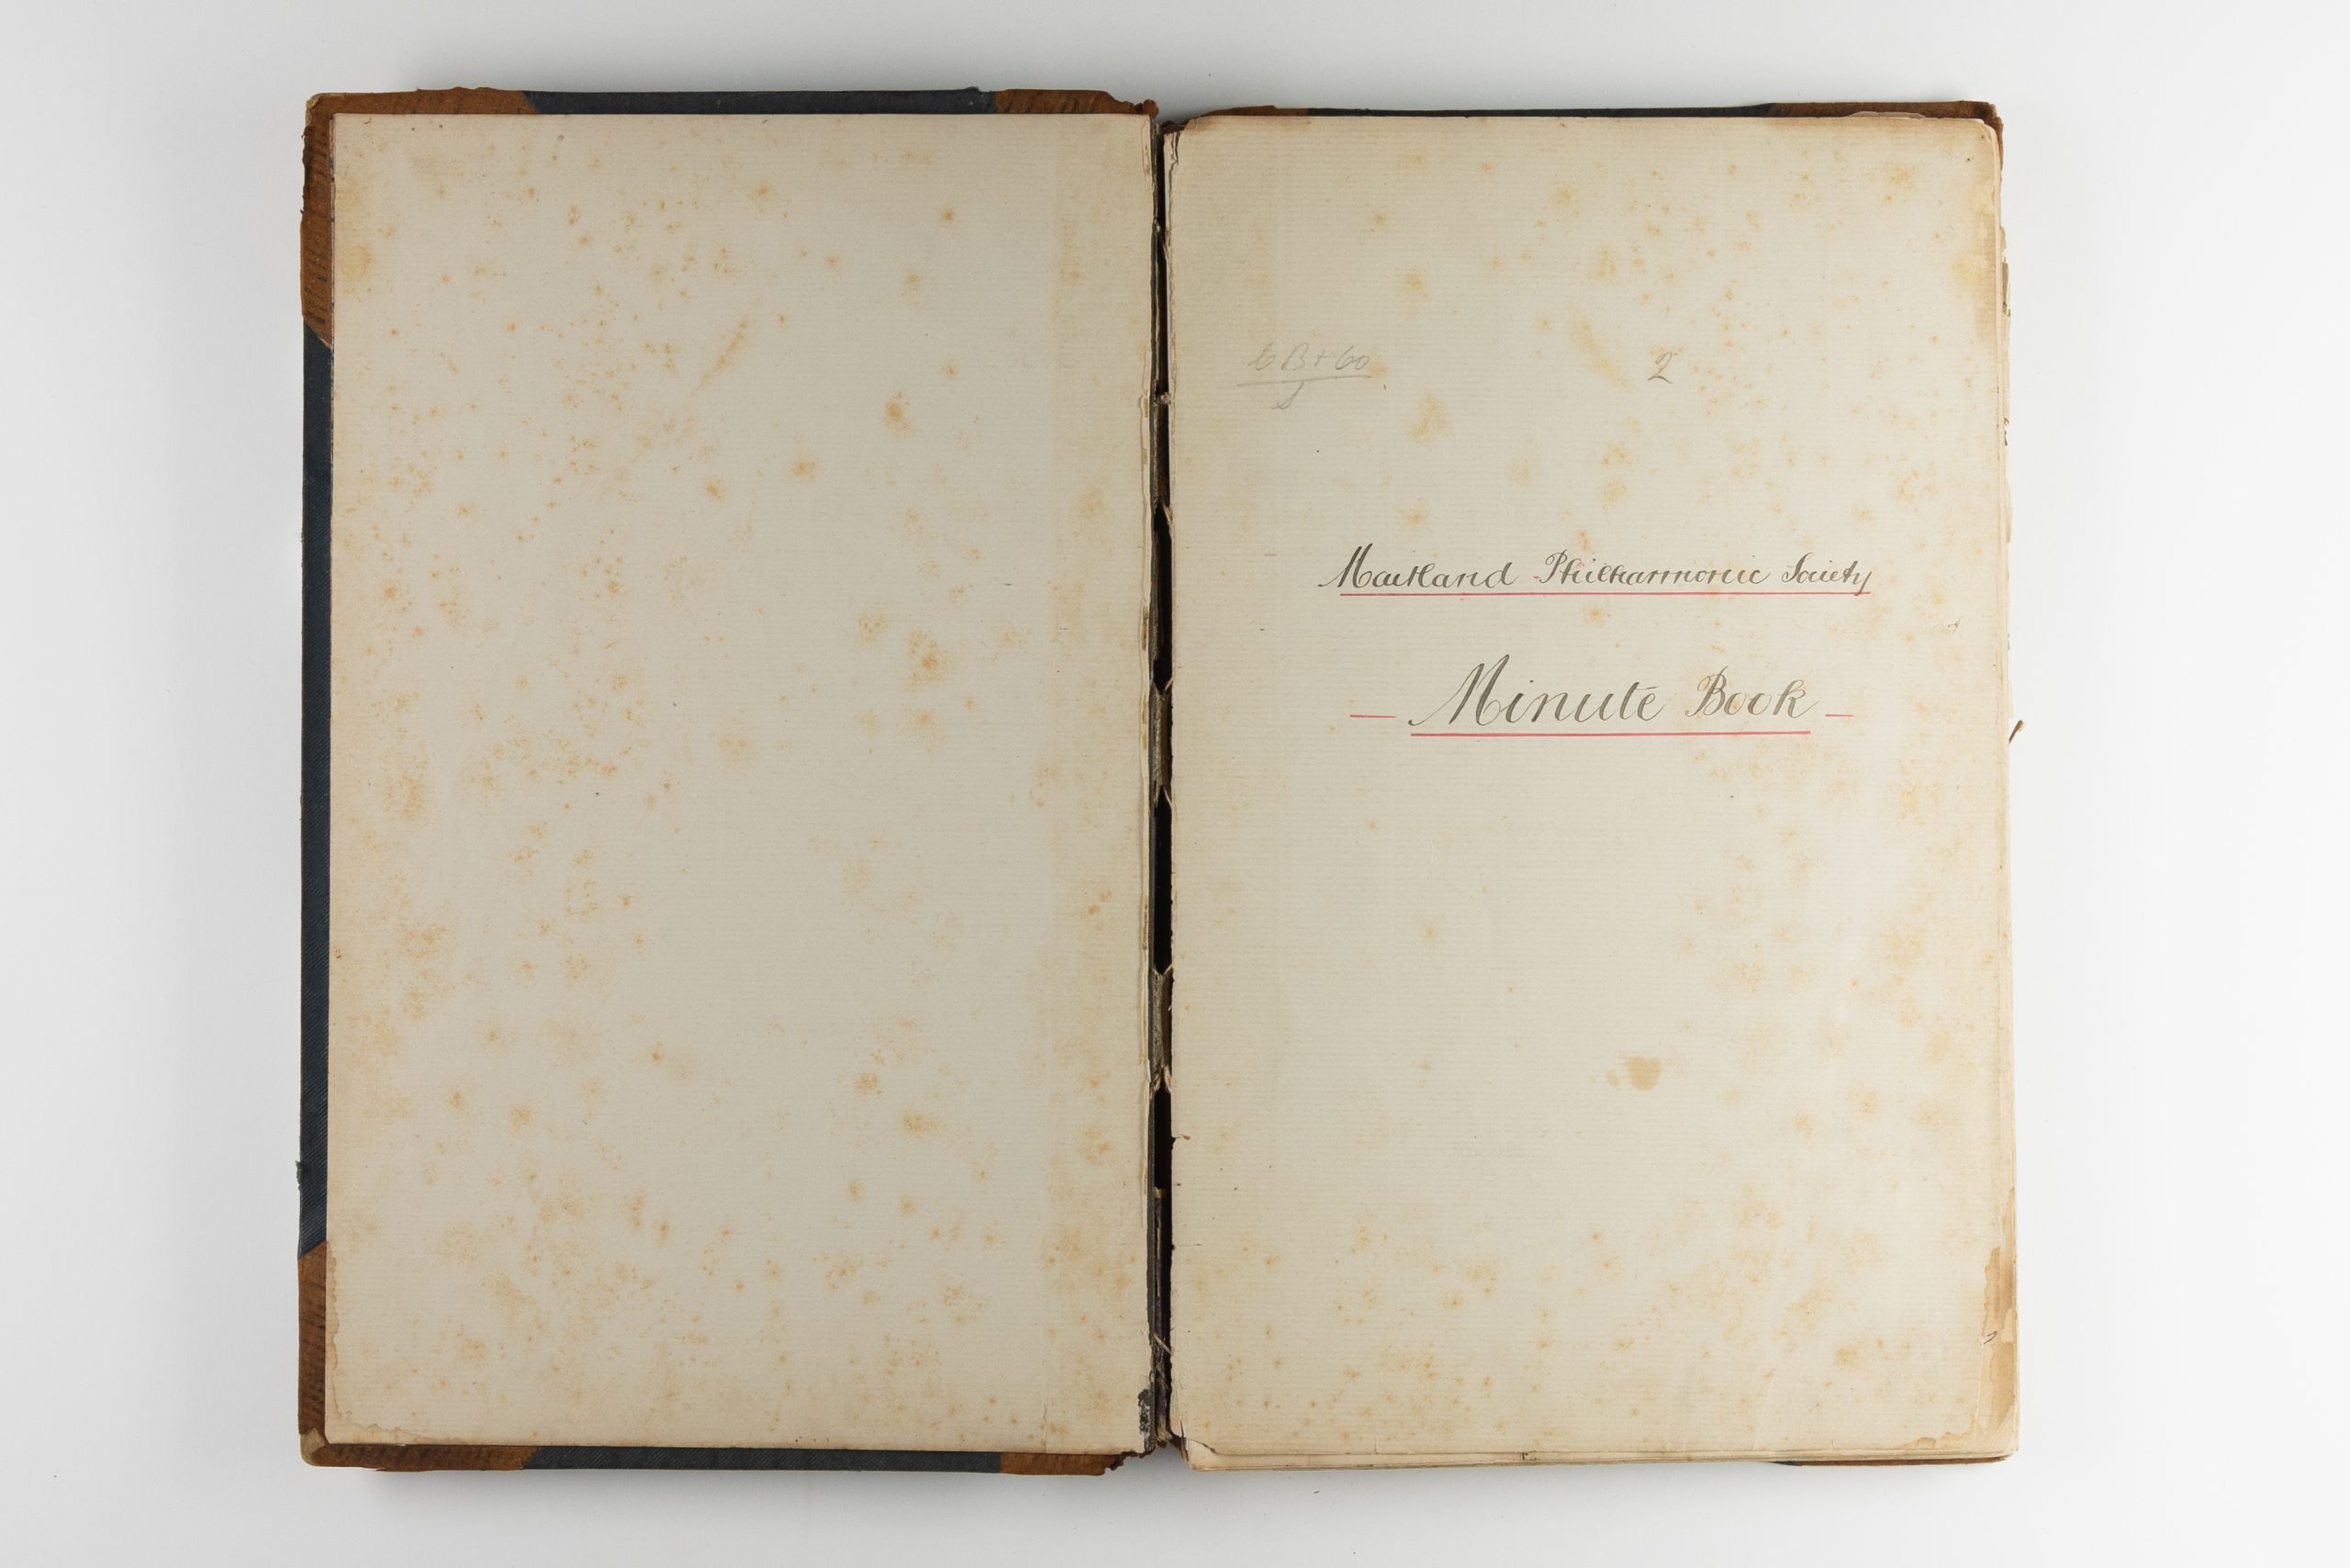 2
Maitland Philharmonic Society
Minute Book